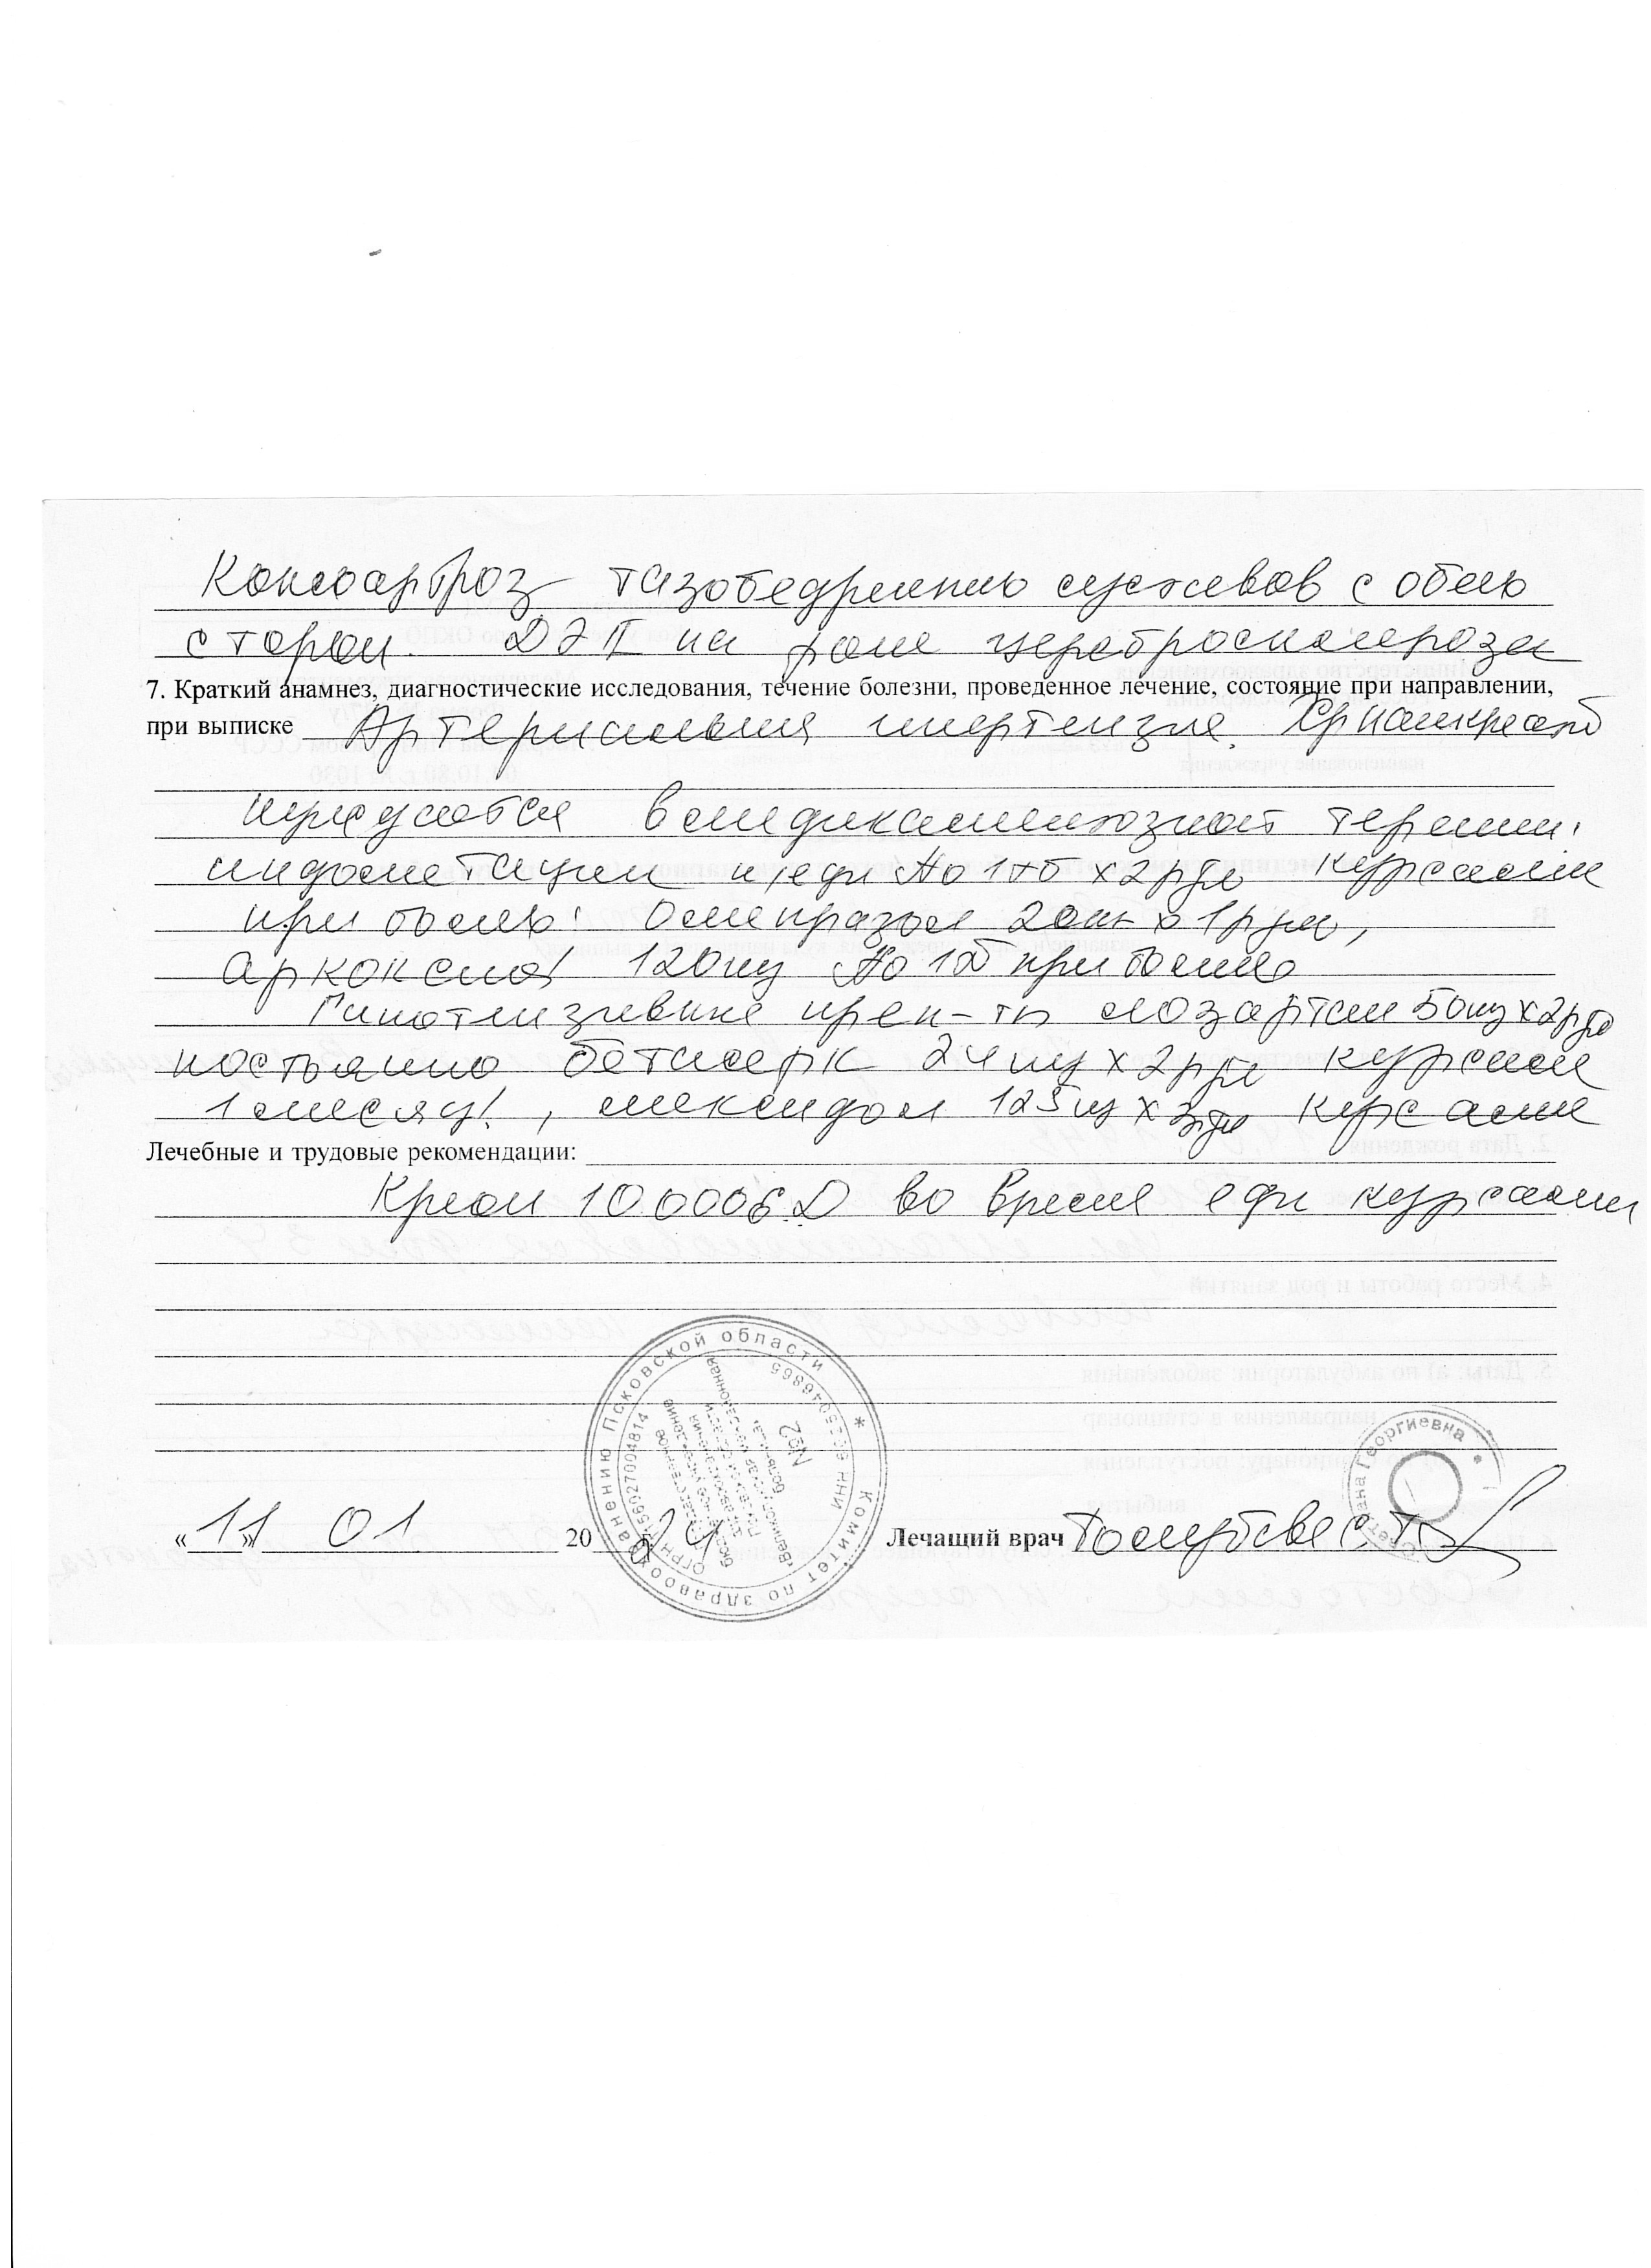 Коксоартроз тазобедренных суставов с обеих
сторон. ДЭ II на фоне церебросклероза
7. Краткий анамнез, диагностические исследования, течение болезни, проведенное лечение, состояние при направлении,
при выписке Артериальная гипертензия. Хр панкреатит
нуждается в медикаментозной терапии:
индометацин п/еды по 1тб х 2р/д курсами
при болях: Омепразол 20мг х 1р/д,
Аркоксиа 120мг по 1т при болях
Гипотензивные преп-ты лозартан 50мг х 2р/д
постоянно бетасерк 24мг х 2р/д курсами
1 месяц!, мексидол 125мг х 3р/д курсами
Лечебные и трудовые рекомендации:
Креон 10000 ЕД во время еды курсами
« 11 » 01 20 24 Лечащий врач
Комитет по здравоохранению Псковской области *
ОГРН 1156027004814
№2
Светлана Георгиевна